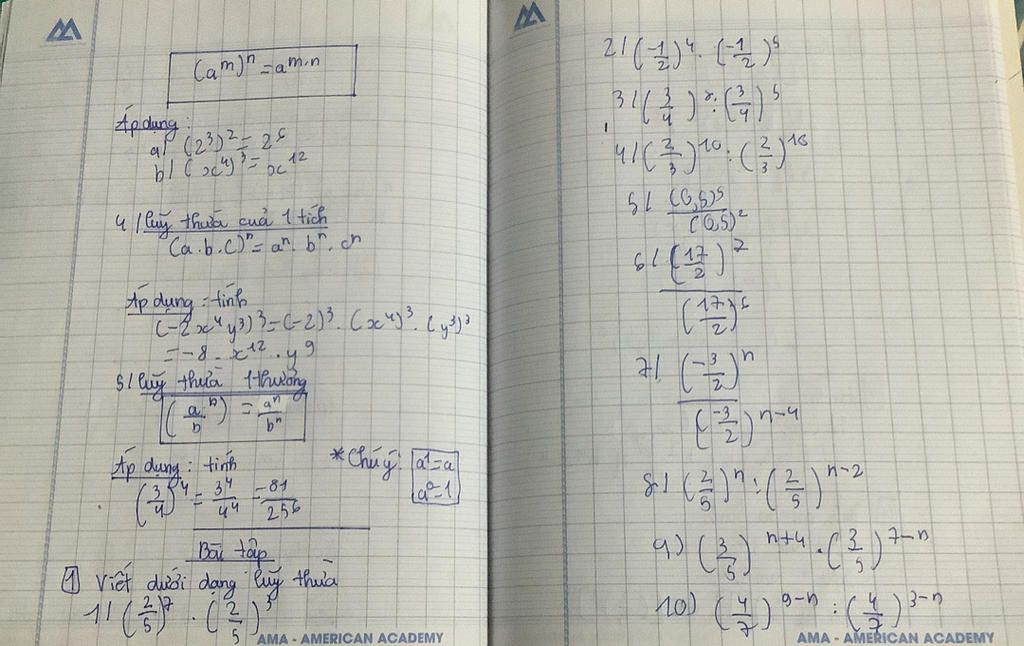 (a^m)^n = a^{m.n}
Áp dụng:
a/ (2^3)^2 = 2^6
b/ (x^4)^3 = x^12
4/ luỹ thừa cuả 1 tích
(a.b.c)^n = a^n . b^n . c^n
Áp dụng: tính
(-2x^4y^3)^3 = (-2)^3 . (x^4)^3 . (y^3)^3
= -8 . x^12 . y^9
5/ luỹ thừa 1 thương
(a/b)^n = a^n/b^n
Áp dụng: tính
* Chú ý: a^1 = a
a^0 = 1
(3/4)^4 = 3^4/4^4 = -81/256
Bài tập
1 Viết dưới dạng luỹ thừa
1/ (2/5)^7 . (2/5)^3
AMA - AMERICAN ACADEMY
2/ (-1/2)^4 . (-1/2)^5
3/ (3/4) : (3/4)^5
4/ (2/3)^10 : (2/3)^10
5/ (0,5)^5/(0,5)^2
6/ (17/2)^7/(17/2)^6
7/ (-3/2)^n/(-3/2)^{n-4}
8/ (2/5)^n : (2/5)^{n-2}
9) (3/5)^{n+4} . (3/5)^{7-n}
10) (4/7)^{9-n} : (4/7)^{3-n}
AMA - AMERICAN ACADEMY